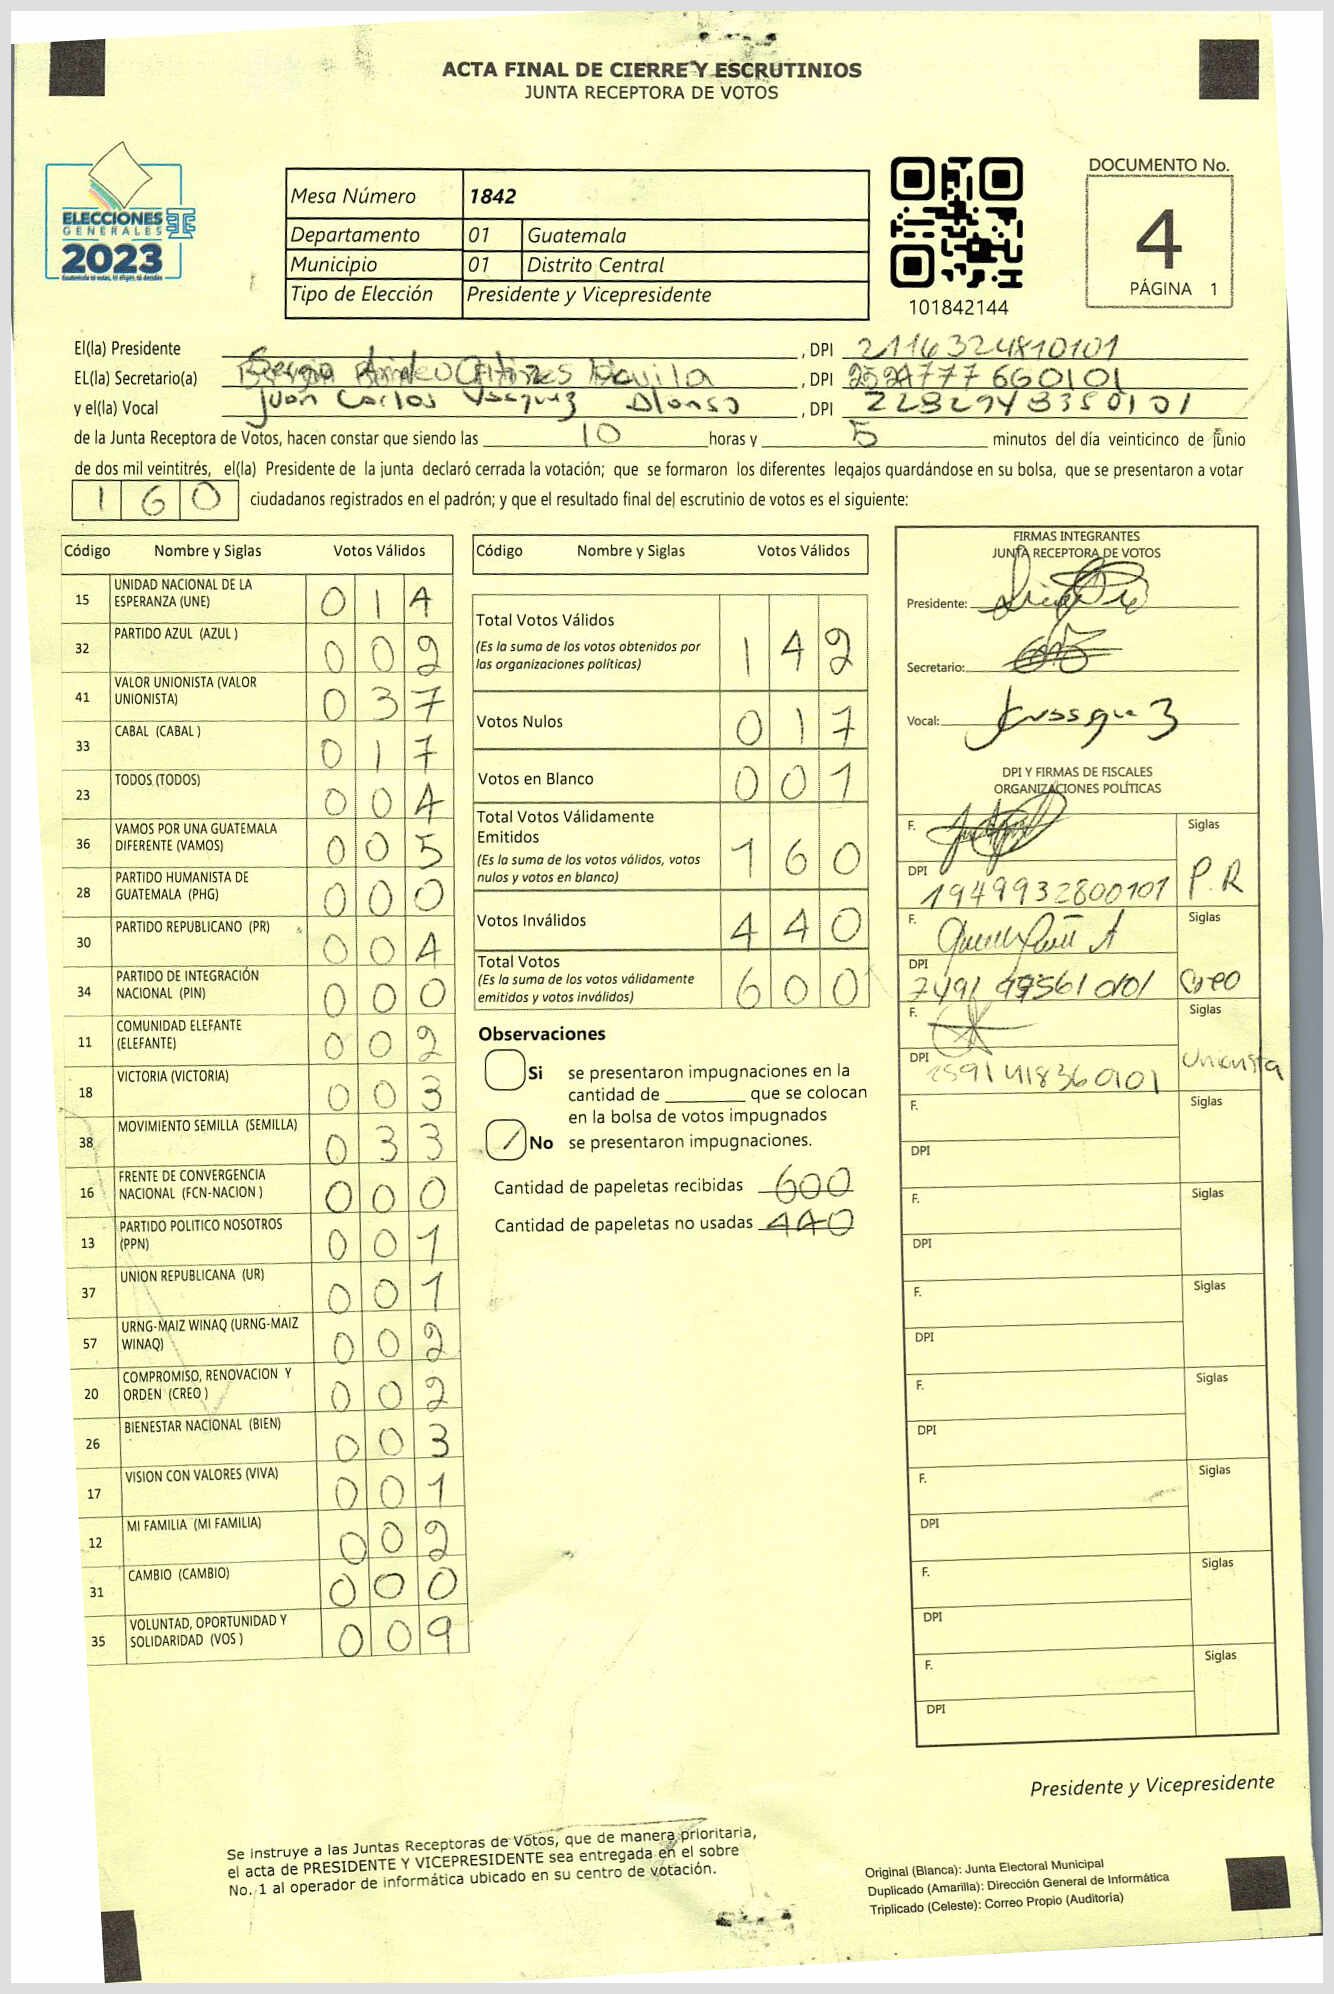 ACTA FINAL DE CIERRE Y ESCRUTINIOS
JUNTA RECEPTORA DE VOTOS
ELECCIONES
GENERALES
2023
Mesa Número 1842
Departamento 01 Guatemala
Municipio 01 Distrito Central
Tipo de Elección Presidente y Vicepresidente
101842144
DOCUMENTO No.
4
PÁGINA 1
El(la) Presidente , DPI 2116324810101
EL(la) Secretario(a) Davila , DPI 777660101
y el(la) Vocal Juan Carlos Vasquez Alonso , DPI
de la Junta Receptora de Votos, hacen constar que siendo las 10 horas y 5 minutos del día veinticinco de junio
de dos mil veintitrés, el(la) Presidente de la junta declaró cerrada la votación; que se formaron los diferentes legajos guardándose en su bolsa, que se presentaron a votar
160 ciudadanos registrados en el padrón; y que el resultado final del escrutinio de votos es el siguiente:
Código Nombre y Siglas Votos Válidos
15 UNIDAD NACIONAL DE LA ESPERANZA (UNE) 014
32 PARTIDO AZUL (AZUL ) 002
41 VALOR UNIONISTA (VALOR UNIONISTA) 037
33 CABAL (CABAL ) 017
23 TODOS (TODOS) 004
36 VAMOS POR UNA GUATEMALA DIFERENTE (VAMOS) 005
28 PARTIDO HUMANISTA DE GUATEMALA (PHG) 000
30 PARTIDO REPUBLICANO (PR) 004
34 PARTIDO DE INTEGRACIÓN NACIONAL (PIN) 000
11 COMUNIDAD ELEFANTE (ELEFANTE) 002
18 VICTORIA (VICTORIA) 003
38 MOVIMIENTO SEMILLA (SEMILLA) 033
16 FRENTE DE CONVERGENCIA NACIONAL (FCN-NACION ) 000
13 PARTIDO POLITICO NOSOTROS (PPN) 001
37 UNION REPUBLICANA (UR) 001
57 URNG-MAIZ WINAQ (URNG-MAIZ WINAQ) 002
20 COMPROMISO, RENOVACION Y ORDEN (CREO ) 002
26 BIENESTAR NACIONAL (BIEN) 003
17 VISION CON VALORES (VIVA) 001
12 MI FAMILIA (MI FAMILIA) 002
31 CAMBIO (CAMBIO) 000
35 VOLUNTAD, OPORTUNIDAD Y SOLIDARIDAD (VOS ) 009
Código Nombre y Siglas Votos Válidos
Total Votos Válidos 142
(Es la suma de los votos obtenidos por
las organizaciones políticas)
Votos Nulos 017
Votos en Blanco 001
Total Votos Válidamente
Emitidos 160
(Es la suma de los votos válidos, votos
nulos y votos en blanco)
Votos Inválidos 440
Total Votos 600
(Es la suma de los votos válidamente
emitidos y votos inválidos)
Observaciones
Si se presentaron impugnaciones en la
cantidad de ________ que se colocan
en la bolsa de votos impugnados
No se presentaron impugnaciones.
Cantidad de papeletas recibidas 600
Cantidad de papeletas no usadas 440
FIRMAS INTEGRANTES
JUNTA RECEPTORA DE VOTOS
Presidente:
Secretario:
Vocal: Jvasquez
DPI Y FIRMAS DE FISCALES
ORGANIZACIONES POLÍTICAS
F. Siglas
DPI 1949932800101 P.R
F. Siglas
DPI Creo
F. Siglas
DPI Unionista
F. Siglas
DPI
F. Siglas
DPI
F. Siglas
DPI
F. Siglas
DPI
F. Siglas
DPI
F. Siglas
DPI
F. Siglas
DPI
Presidente y Vicepresidente
Se instruye a las Juntas Receptoras de Votos, que de manera prioritaria,
el acta de PRESIDENTE Y VICEPRESIDENTE sea entregada en el sobre
No. 1 al operador de informática ubicado en su centro de votación.
Original (Blanca): Junta Electoral Municipal
Duplicado (Amarilla): Dirección General de Informática
Triplicado (Celeste): Correo Propio (Auditoria)